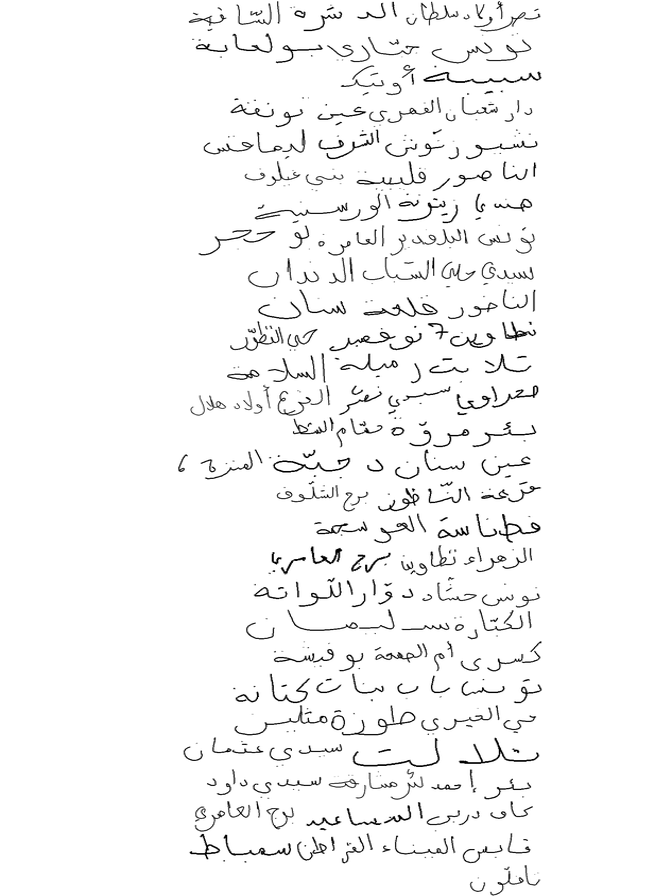 قصر أولاد سلطان الدشرة الشافية
تونس حشاد بولعابة
سبيبة أوتيك
دار شعبان الفهري عين تونقة
نشيو رتوش الشرف ليماقس
الناضور قليبية بني غيلوف
هندي زيتونة الورسنية
تونس البلفدير العامرة لو حجر
سيدي حلي الشباب الدندان
الناضور قلعة سنان
تطاوين 7 نوفمبر حي التطوّر
تلابت رميلة السلامة
معراوي سيدي نصر الفرع أولاد هلال
بئر مروّة مقام الشط
عين سنان دجبّة المنزه 6
قرعة النّاظور برج الشلّوف
فطناسة العوسجة
الزهراء تطاوين برج العامري
تونس حشاد دوّار اللّواتة
الكتّارة سليمان
كسرى أم الصمعة بوفيشة
تونس باب بنات كتانة
حي الخيري طورزة مثلين
تلالت سيدي عثمان
بئر إحمد بئر مشارقة سيدي داود
كاف دربي المساعيد برج العامري
قابس الميناء القراطن سمباط
نافلّون